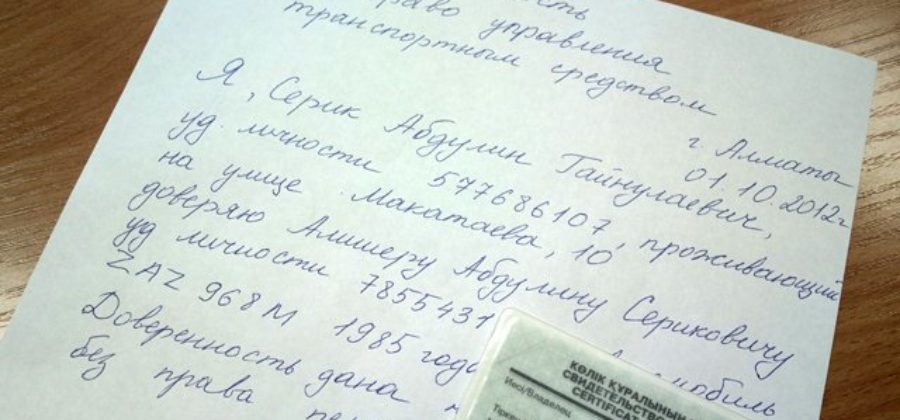 право управления
транспортным средством
г. Алматы
01.10.2012г
Я, Серик Абдулин Гайнулаевич,
уд. личности 577686107, проживающий
на улице Макатаева, 10
доверяю Алишеру Абдулину Сериковичу
уд личности 7855431
ZAZ 968М 1985 года
Доверенность дана
без права
КӨЛІК ҚҰРАЛЫНЫҢ
СВИДЕТЕЛЬСТВО
CERTIFICA
Иесі/Владелец